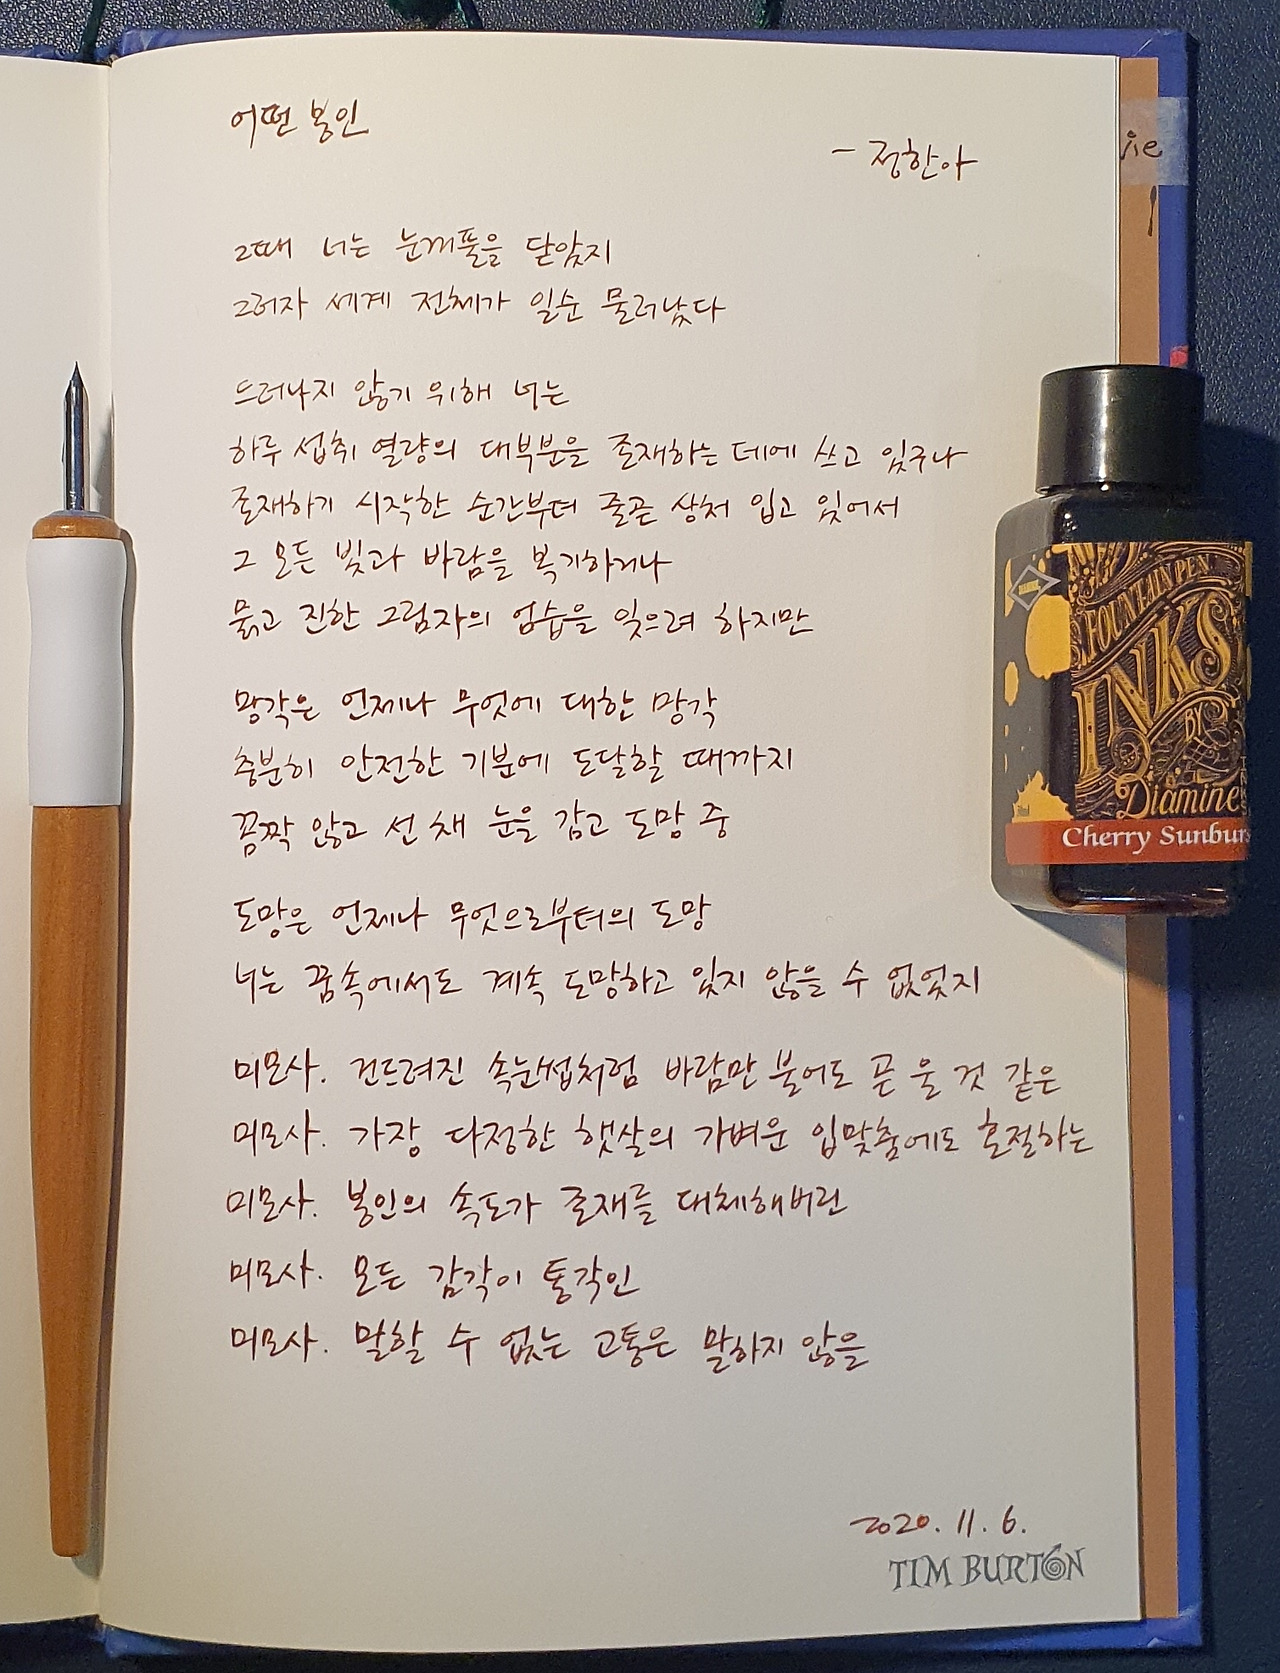 어떤 봉인
- 정한아
그때 너는 눈꺼풀을 닫았지
그러자 세계 전체가 일순 물러났다
드러나지 않기 위해 너는
하루 섭취 열량의 대부분을 존재하는 데에 쓰고 있구나
존재하기 시작한 순간부터 줄곧 상처 입고 있어서
그 모든 빛과 바람을 복기하거나
묽고 진한 그림자의 엄습을 잊으려 하지만
망각은 언제나 무엇에 대한 망각
충분히 안전한 기분에 도달할 때까지
꼼짝 않고 선 채 눈을 감고 도망 중
도망은 언제나 무엇으로부터의 도망
너는 꿈속에서도 계속 도망하고 있지 않을 수 없었지
미모사. 건드려진 속눈썹처럼 바람만 불어도 곧 울 것 같은
미모사. 가장 다정한 햇살의 가벼운 입맞춤에도 혼절하는
미모사. 봉인의 속도가 존재를 대체해버린
미모사. 모든 감각이 통각인
미모사. 말할 수 없는 고통은 말하지 않을
2020. 11. 6.
TIM BURTON
vie
FOUNTAIN PEN
INKS
BY
Diamine
Cherry Sunburs